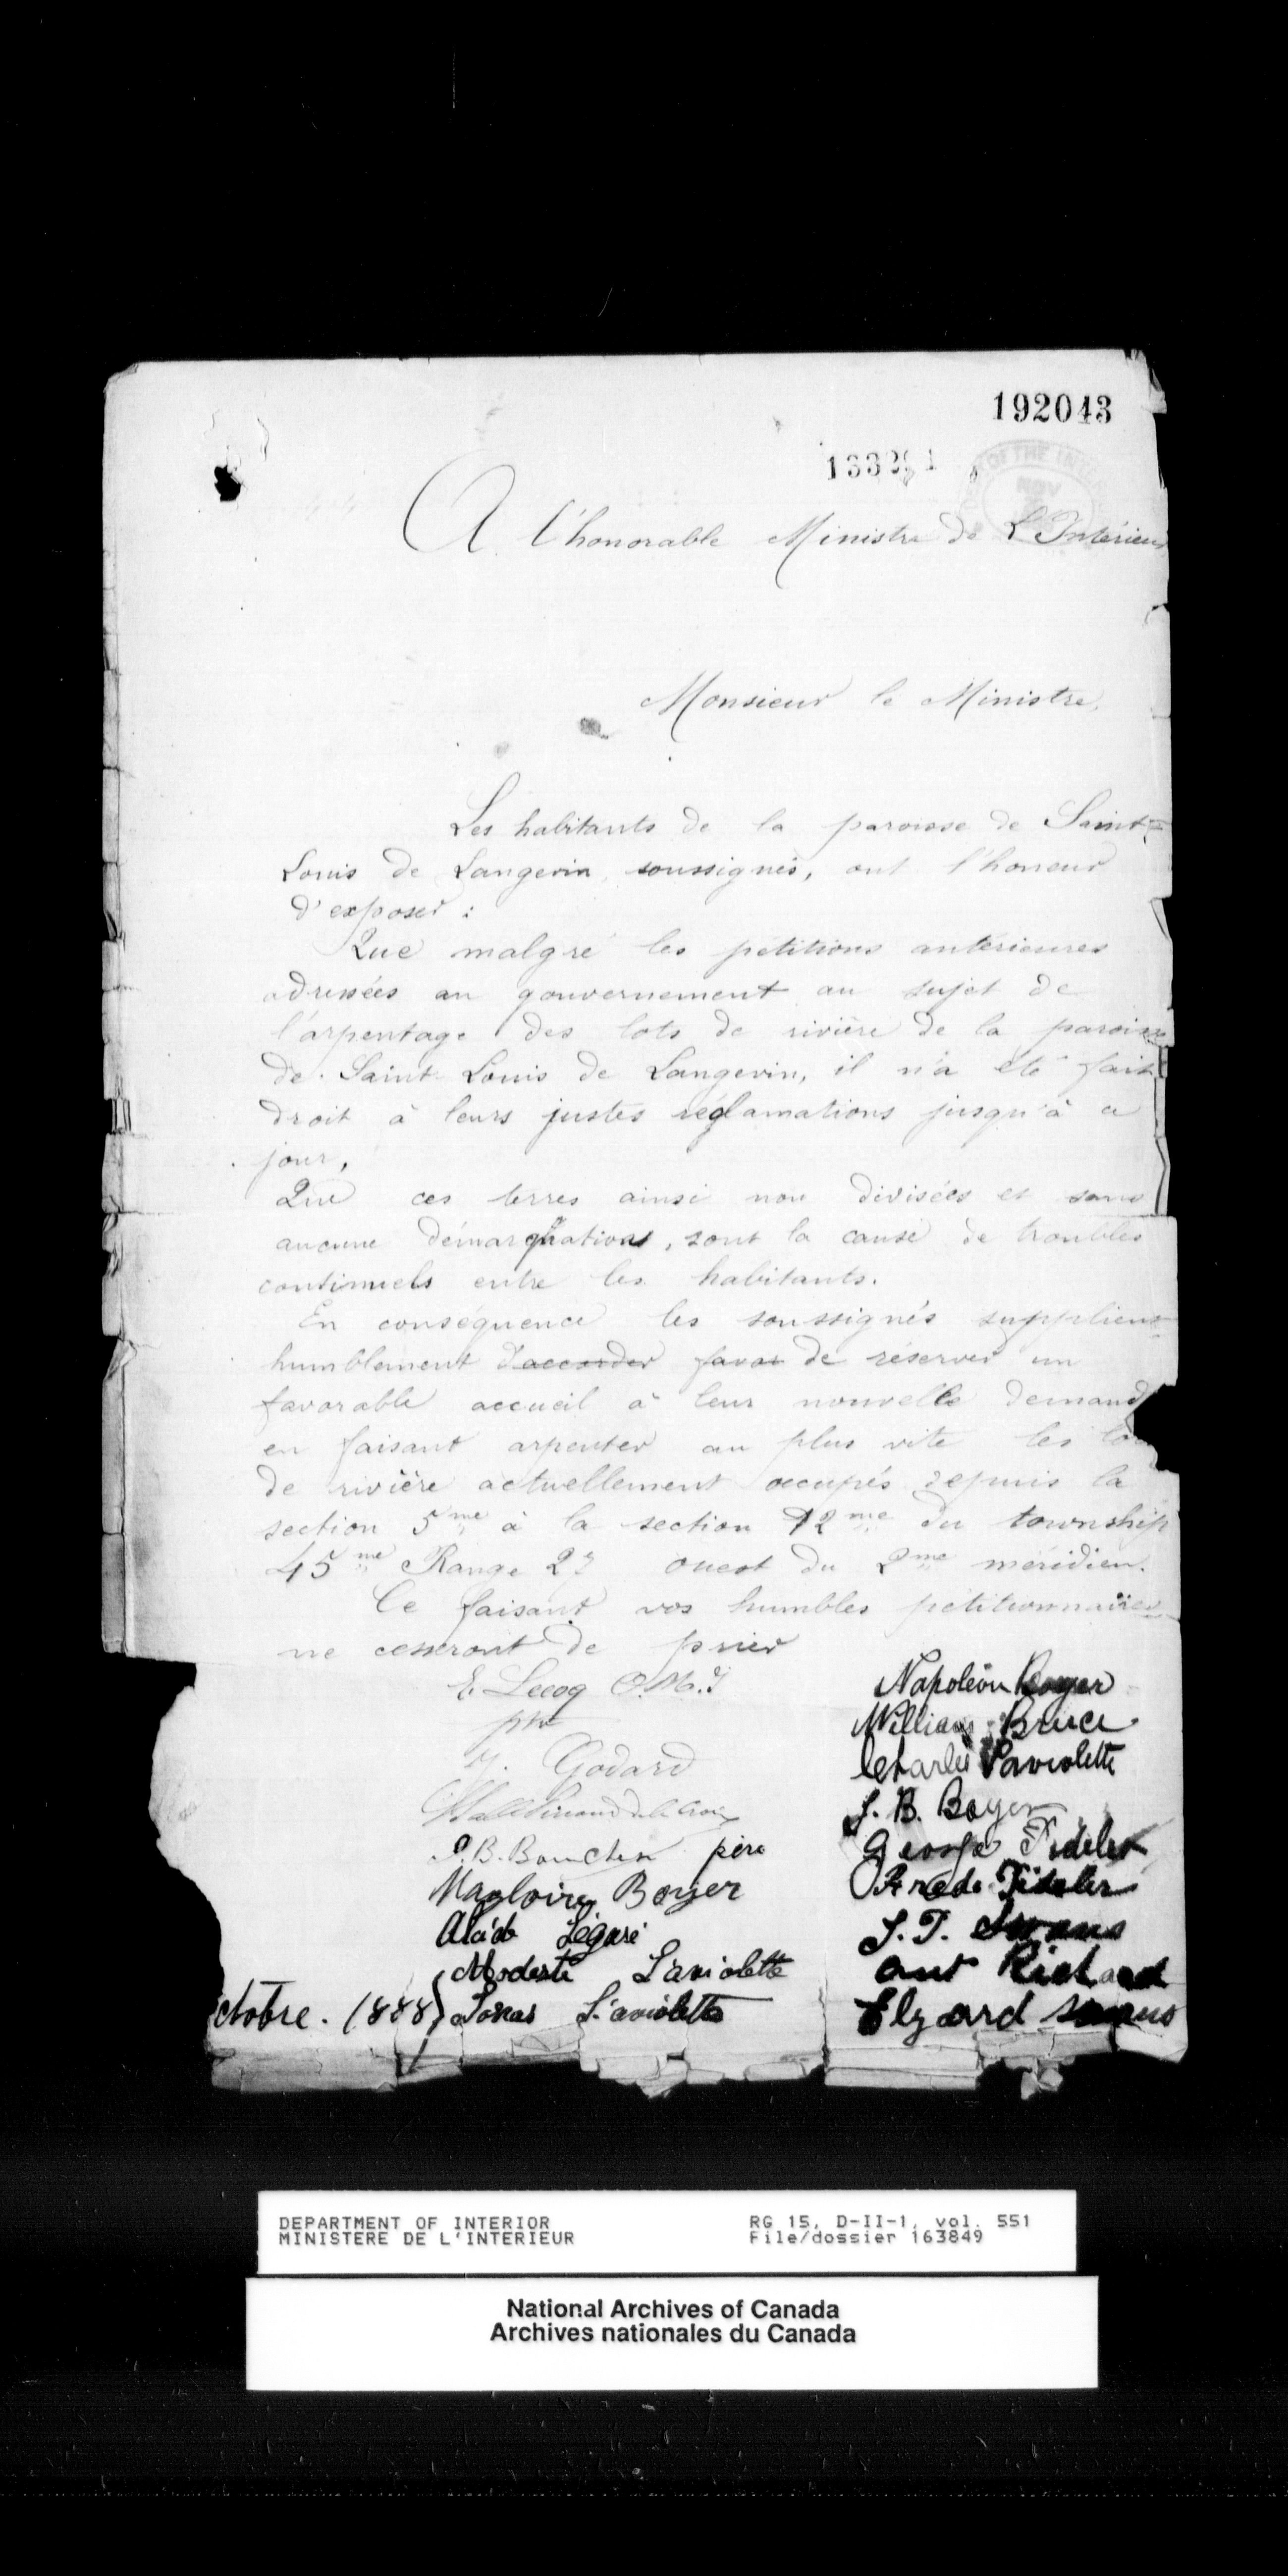 192043
OF THE INTER
NOV
A l'honorable Ministre de L'Intérieur
Monsieur le Ministre,
Les habitants de la paroisse de Saint-
Louis de Langevin, soussignés, ont l'honeur
d'exposer :
Que malgré les pétitions antérieures
adressées au gouvernement au sujet de
l'arpentage des lots de rivière de la paroisse
de Saint Louis de Langevin, il n'a été fait
droit à leurs justes réglamations jusqu'à ce
jour,
Que ces terres ainsi non divisées et sans
aucune démarquations, sont la cause de troubles
continuels entre les habitants.
En conséquence les soussignés supplient
humblement d'accorder favor de réserver un
favorable accueil à leur nouvelle demand
en faisant arpenter au plus vite les
de rivière actuellement occupés depuis la
section 5me à la section 12me du township
45me Range 27 ouest du 2me méridien.
Ce faisant vos humbles pétitionnaires
ne cesseront de prier
E. Lecoq O.M.I
ptr
Napoléon Boyer
William Bruce
Godard
Charles Laviolette
J. B. Boyer
J. B. Boucher père
George Fideler
Magloire Boyer
Fidler
Légaré
J. T. Swans
Modeste Laviolette
ant Richard
ctobre. 1888 Laviolette
Elzard swans
DEPARTMENT OF INTERIOR
MINISTERE DE L'INTERIEUR
RG 15, D-II-1, vol. 551
File/dossier 163849
National Archives of Canada
Archives nationales du Canada